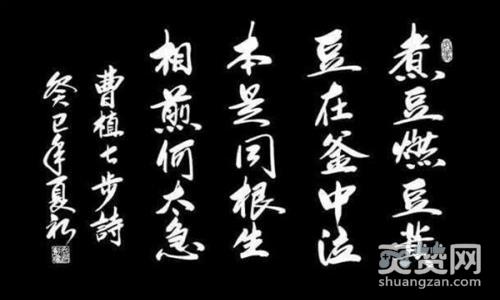 煮豆燃豆萁
豆在釜中泣
本是同根生
相煎何太急
曹植七步詩
癸巳年夏初
灵赞网
shuangzan.com